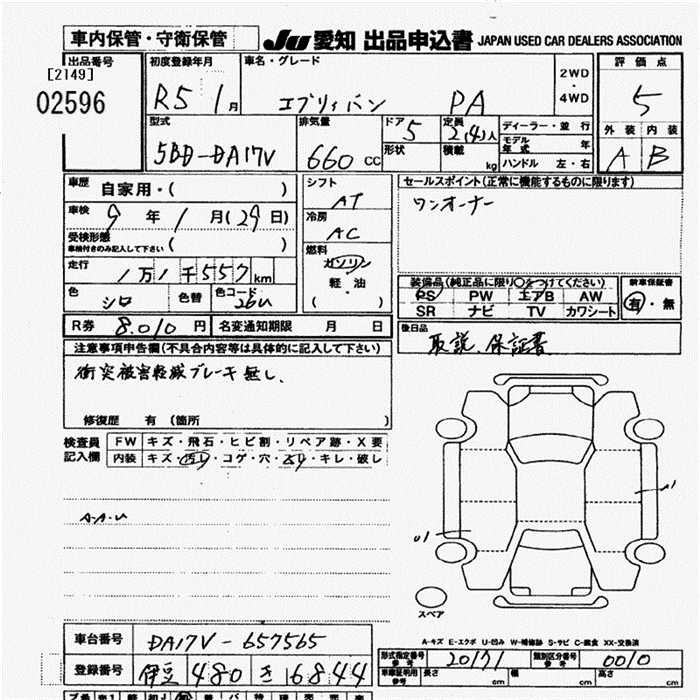 車内保管・守衛保管
JU 愛知 出品申込書 JAPAN USED CAR DEALERS ASSOCIATION
出品番号
[2149]
02596
初度登録年月
R5 1月
車名・グレード
エブリィバン PA
2WD
・
4WD
評価点
5
外装 内装
A B
型式
5BD-DA17V
排気量
660 CC
ドア 5
形状
定員 2(4)人
積載 kg
ディーラー・並行
モデル年式 年
ハンドル 左・右
車歴 自家用・( )
車検 9年 1月(29日)
受検形態
車検付きのみ記入して下さい ( )
走行 1万1千557km
色 シロ 色替 色コード 26U
シフト
AT
冷房
AC
燃料
ガソリン
軽・油
( )
セールスポイント(正常に機能するものに限ります)
ワンオーナー
装備品(純正品に限り○をつけてください)
PS PW エアB AW
SR ナビ TV カワシート
新車保証書
有・無
R券 8.010円 名変通知期限 月 日
後日品
取説、保証書
注意事項申告欄(不具合内容等は具体的に記入して下さい)
衝突被害軽減ブレーキ無し、
修復歴 有(箇所 )
検査員
記入欄
FW キズ・飛石・ヒビ割・リペア跡・X要
内装 キズ・汚レ・コゲ・穴・スレ・キレ・破レ
A-A-U
U1
A1
スペア
A-キズ E-エクボ U-凹み W-補修跡 S-サビ C-腐食 XX-交換済
車台番号 DA17V-657565
登録番号 伊豆 480 き 6844
型式指定番号 参考 20171 類別区分番号 参考 0010
車庫証明用 参考 長さ cm 幅 cm 高さ cm